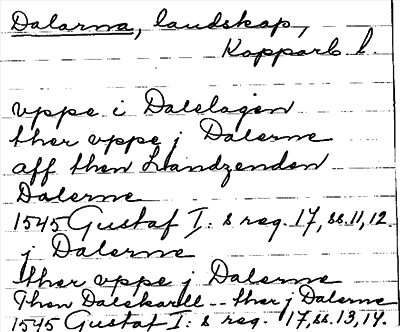 Dalarna, landskap,
Kopparb l.
vppe i Dalelagen
ther vppe j Dalerne
aff then Landzenden
Dalerne
1545 Gustaf I: s reg. 17, ss. 11, 12.
j Dalerne
ther vppe j Dalerne
Then Dalekarll -- ther j Dalerne
1545 Gustaf I: s reg. 17, ss. 13, 14.